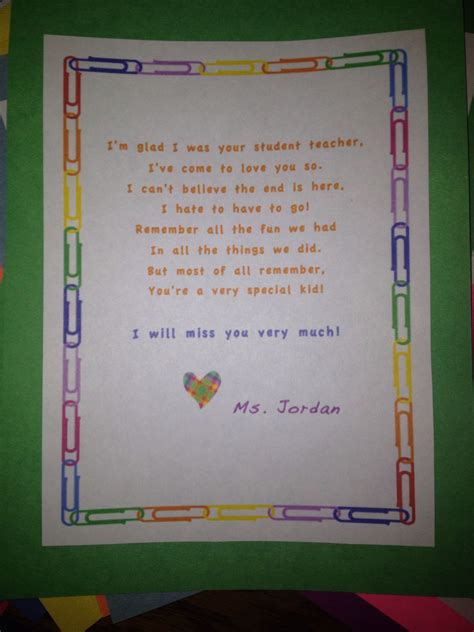 I'm glad I was your student teacher,
I've come to love you so.
I can't believe the end is here,
I hate to have to go!
Remember all the fun we had
In all the things we did.
But most of all remember,
You're a very special kid!
I will miss you very much!
Ms. Jordan